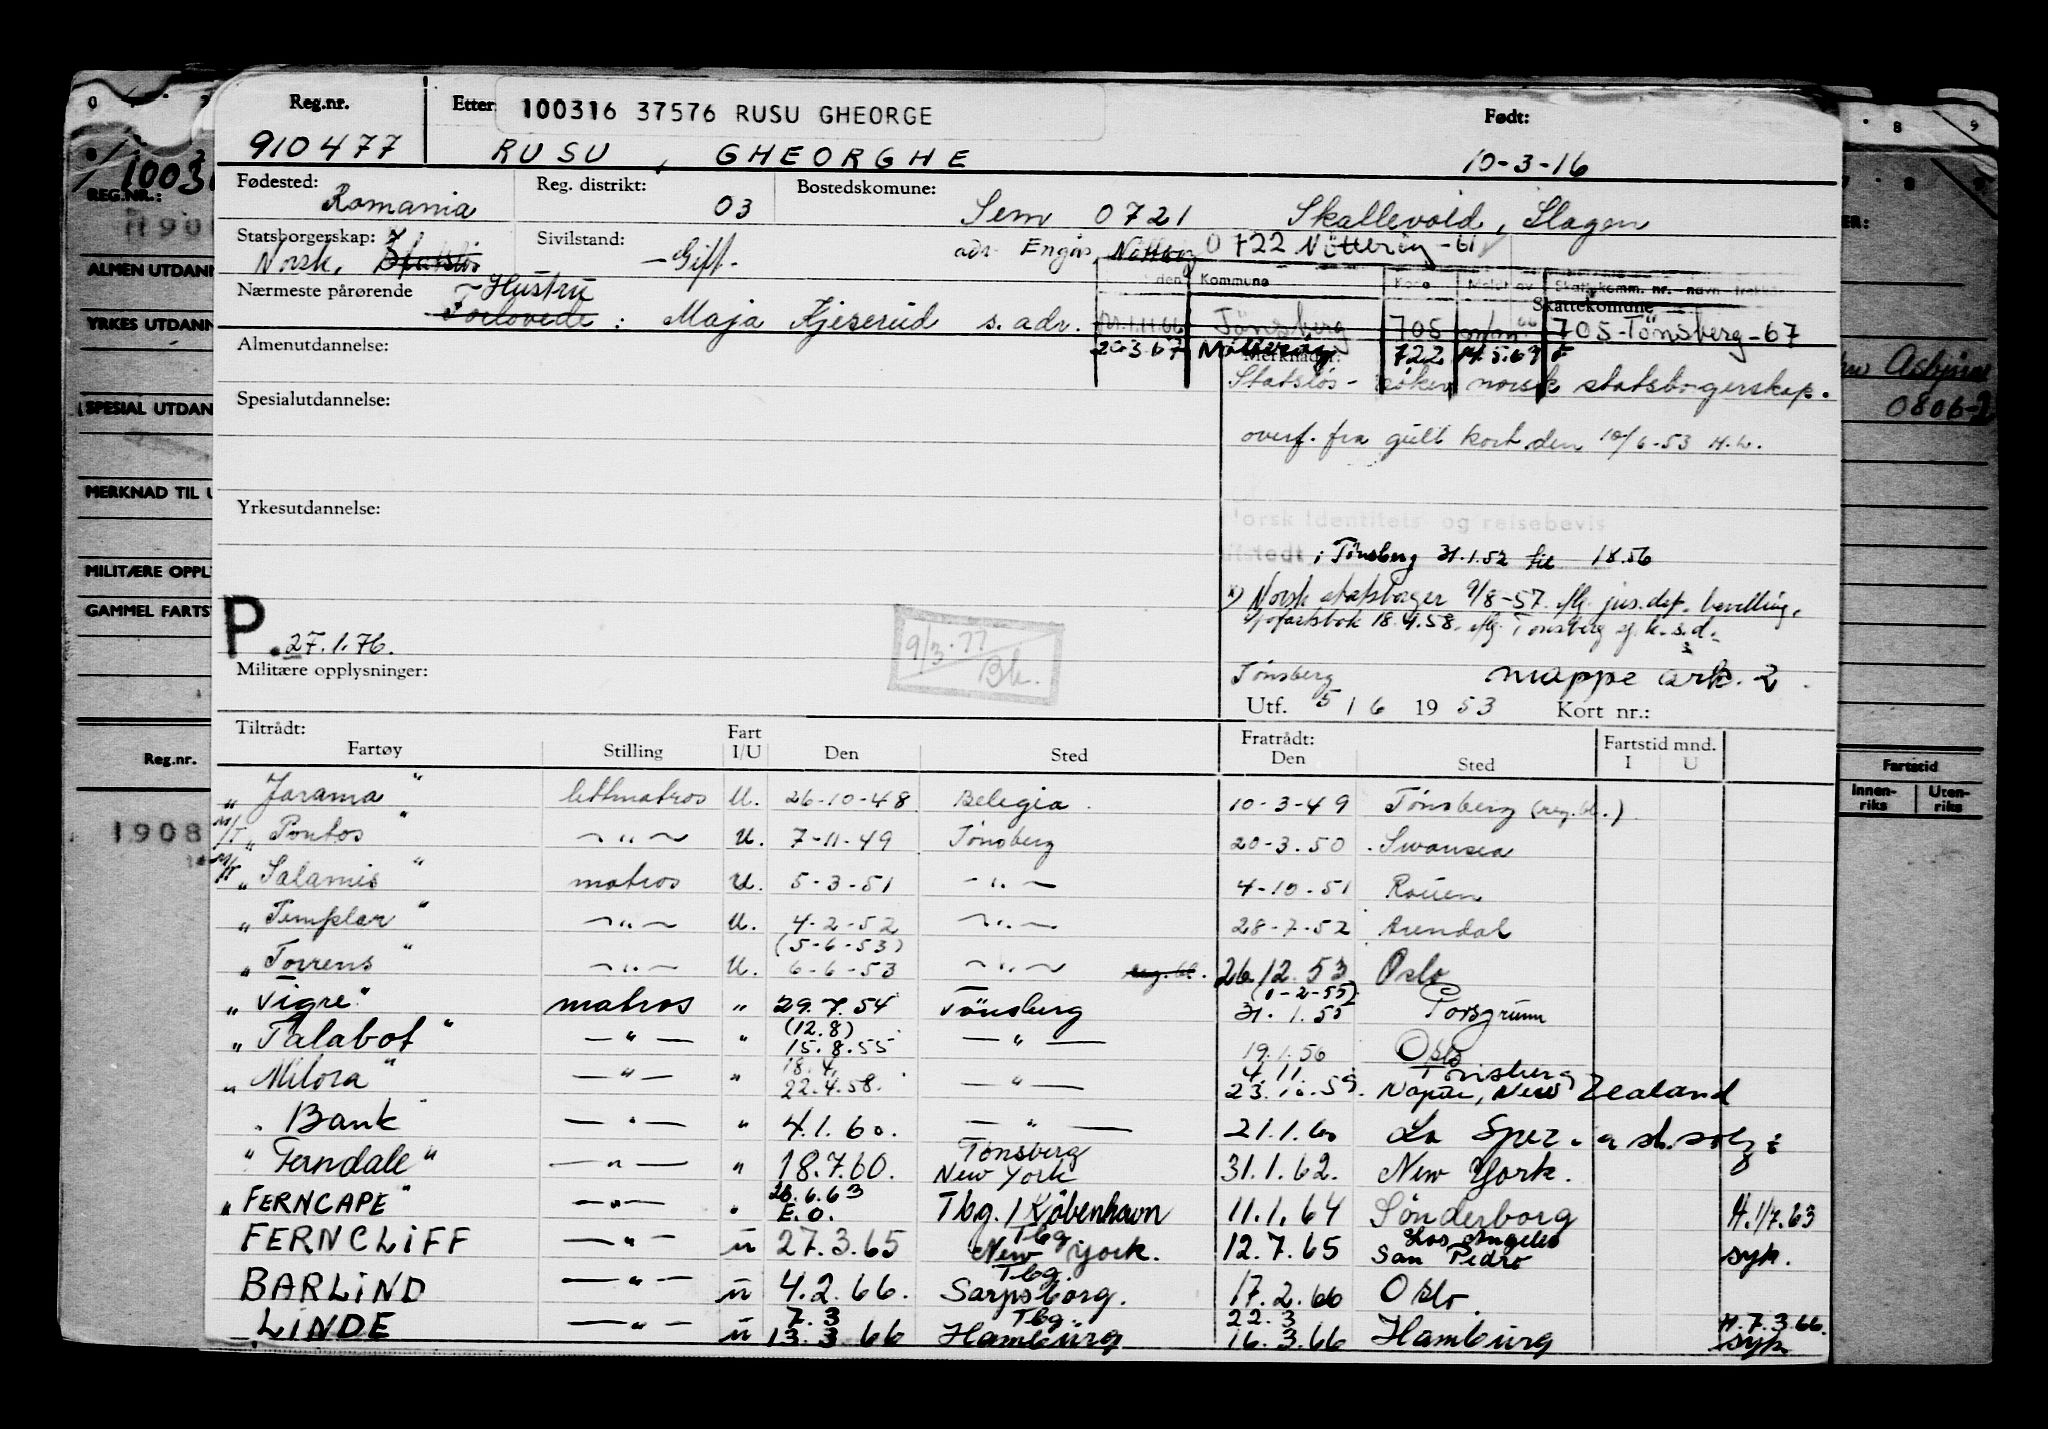 Reg.nr. Etter 100316 37576 RUSU GHEORGE Født:
910477 RUSU, GHEORGHE 10-3-16
Fødested: Romania Reg. distrikt: 03 Bostedskomune: Sem 0721 Skallevold, Slagen
Statsborgerskap: Norsk, Statsløs Sivilstand: Gift. adr Engås, Nøtterøy 0722 Nötteröy -61
Nærmeste pårørende Hustru
Forlovede: Maja Kjeserud s. adr.
den Kommune Kode Meldt av Skattekomm. nr. - navn - trekkår
Skattekomune
1.11.66 Tönsberg 705 705-Tønsberg-67
20.3.67 Nøtterøy 722 14.5.67
Almenutdannelse: Merknader:
Statsløs - søker norsk statsborgerskap.
Spesialutdannelse:
overf. fra gult kort den 10/6-53 H.L.
Yrkesutdannelse:
Norsk Identitets- og reisebevis
utstedt i Tønsberg 31.1.52 til 1.8.56
x) Norsk statsborger 9/8-57. iflg. jus.dep. bevilling.
sjøfartsbok 18.4.58. iflg. Tønsberg sj.k.s.d.
P. 27.1.76.
9/3.77
Bh.
Militære opplysninger:
Tønsberg mappe ark. 2.
Utf. 5/6 1953 Kort nr.:
Tiltrådt: Fart Fratrådt: Fartstid mnd.
Fartøy Stilling I/U Den Sted Den Sted I U
„Jarama“ lettmatros U. 26-10-48 Belegia. 10-3-49 Tønsberg (reg.bl.)
M/T „Pontos“ —„— U. 7-11-49 Tønsberg 20-3.50 Swansea
M/T „Salamis“ matros U. 5-3-51 —„— 4-10-51 Rouen
„Templar“ —„— U. 4-2-52 —„— 28-7-52 Arendal
„Torrens“ —„— U. (5-6-53) 6-6-53 —„— reg.bl. 26.12.53 Oslo
„Tigre“ matros „ 29.7.54 Tönsberg (1-2-55) 31.1.55 Porsgrunn
„Talabot“ —„— „ (12.8) 15.8.55 —„— 19.1.56 Oslo
„Milora“ —„— „ 18.4. 22.4.58. —„— 4.11 Tönsberg 23.10.59. Napier, New Zealand
„Bank“ —„— „ 4.1.60. —„— 21.1.60 La Spezia
„Ferndale“ —„— „ 18.7.60. Tønsberg New York 31.1.62. New York.
„FERNCAPE“ —„— „ 26.6.63 E.O. Tbg. / København 11.1.64 Sønderborg H.1/7.63
FERNCLIFF —„— u 27.3.65 Tbg New York. 12.7.65 Los Angeles San Pedro syk.
BARLIND —„— u 4.2.66. Tbg. Sarpsborg. 17.2.66 Oslo
LINDE —„— u 7.3 13.3 66 Tbg Hamburg 22.3 16.3.66 Hamburg H.7.3.66. syk
REG.NR.:
ALMEN UTDANN
YRKES UTDANN
SPESIAL UTDAN
MERKNAD TIL U
MILITÆRE OPPL
GAMMEL FARTS
Reg.nr.
1908
Asbjørn
0806-2
Fartstid
Innen-riks Uten-riks